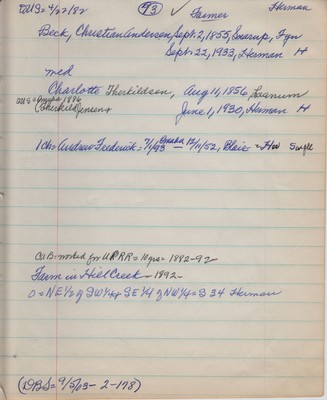 US= 4/22/82 (93) ✓ Farmer Herman
Beck, Christian Andersen, Sept. 2, 1855, Svarup, Fyn
Sept. 22, 1933, Herman H
med
Charlotte Therkildsen, Aug 11, 1856,
US= Omaha 1886
(Therkild Jensen) June 1, 1930, Herman H
1 ch= Andrew Frederick= 7/1/93 Omaha — 12/11/52, Blair = H Single
CaB= worked for UPRR= 10 yrs= 1882-92
Farm in Hill Creek= 1892—
O= NE½ of SW¼ & SE¼ of NW¼= S 34 Herman
(DBS= 9/5/63- 2-178)